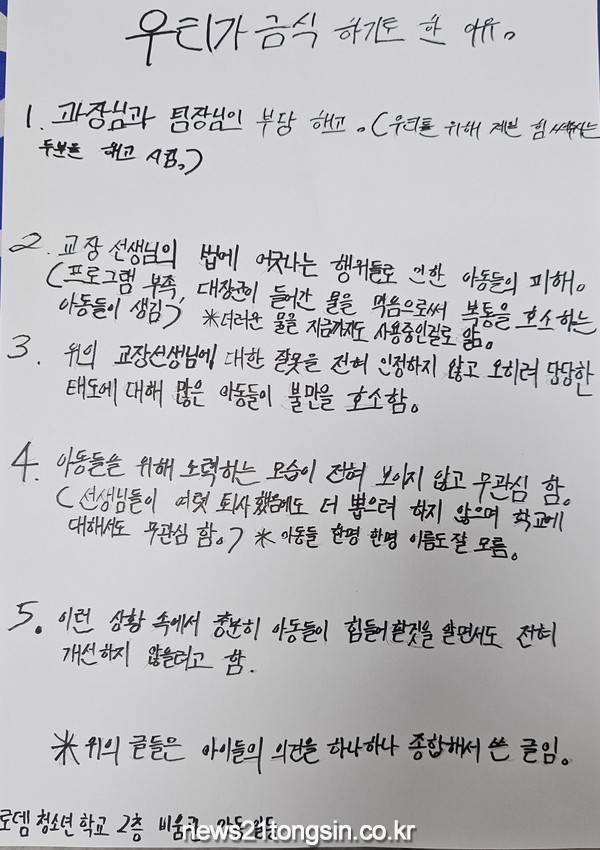 우리가 금식 하기로 한 이유.
1. 과장님과 팀장님의 부당 해고. (우리를 위해 제일 힘 써주시는
두분을 해고 시킴.)
2. 교장 선생님의 법에 어긋나는 행위들로 인한 아동들의 피해.
(프로그램 부족, 대장균이 들어간 물을 먹음으로써 복통을 호소하는
아동들이 생김) ※더러운 물을 지금까지도 사용중인걸로 앎.
3. 위의 교장선생님에 대한 잘못을 전혀 인정하지 않고 오히려 당당한
태도에 대해 많은 아동들이 불만을 호소함.
4. 아동들을 위해 노력하는 모습이 전혀 보이지 않고 무관심 함.
(선생님들이 여럿 퇴사했음에도 더 뽑으려 하지 않으며 학교에
대해서도 무관심 함.) ※ 아동들 한명 한명 이름도 잘 모름.
5. 이런 상황 속에서 충분히 아동들이 힘들어할것을 알면서도 전혀
개선하지 않을려고 함.
※ 위의 글들은 아이들의 의견을 하나하나 종합해서 쓴 글임.
로뎀 청소년 학교 2층 비움
news21tongsin.co.kr